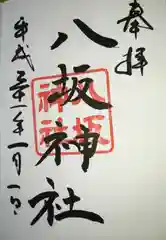 奉拝
八坂神社
平成二十一年一月一日
八坂
神社